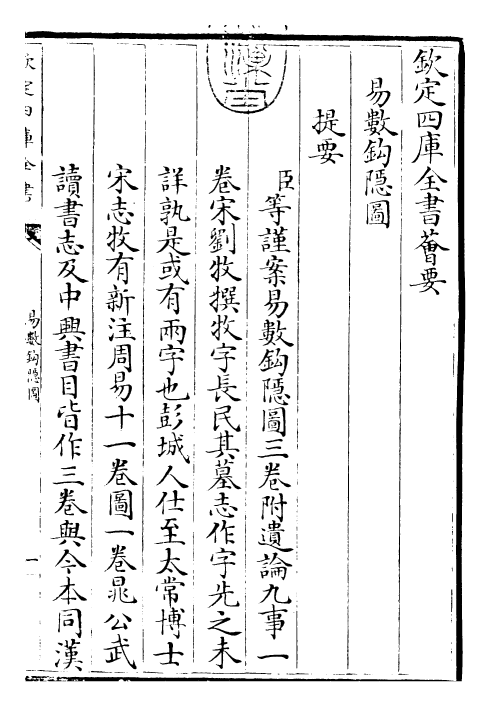 欽定四庫全書薈要
易數鈎隱圖
提要
臣等謹案易數鈎隱圖三卷附遺論九事一
卷宋劉牧撰牧字長民其墓志作字先之未
詳孰是或有兩字也彭城人仕至太常博士
宋志牧有新注周易十一卷圖一卷晁公武
讀書志及中興書目皆作三卷與今本同漢
欽定四庫全書
易數鈎隱圖
一